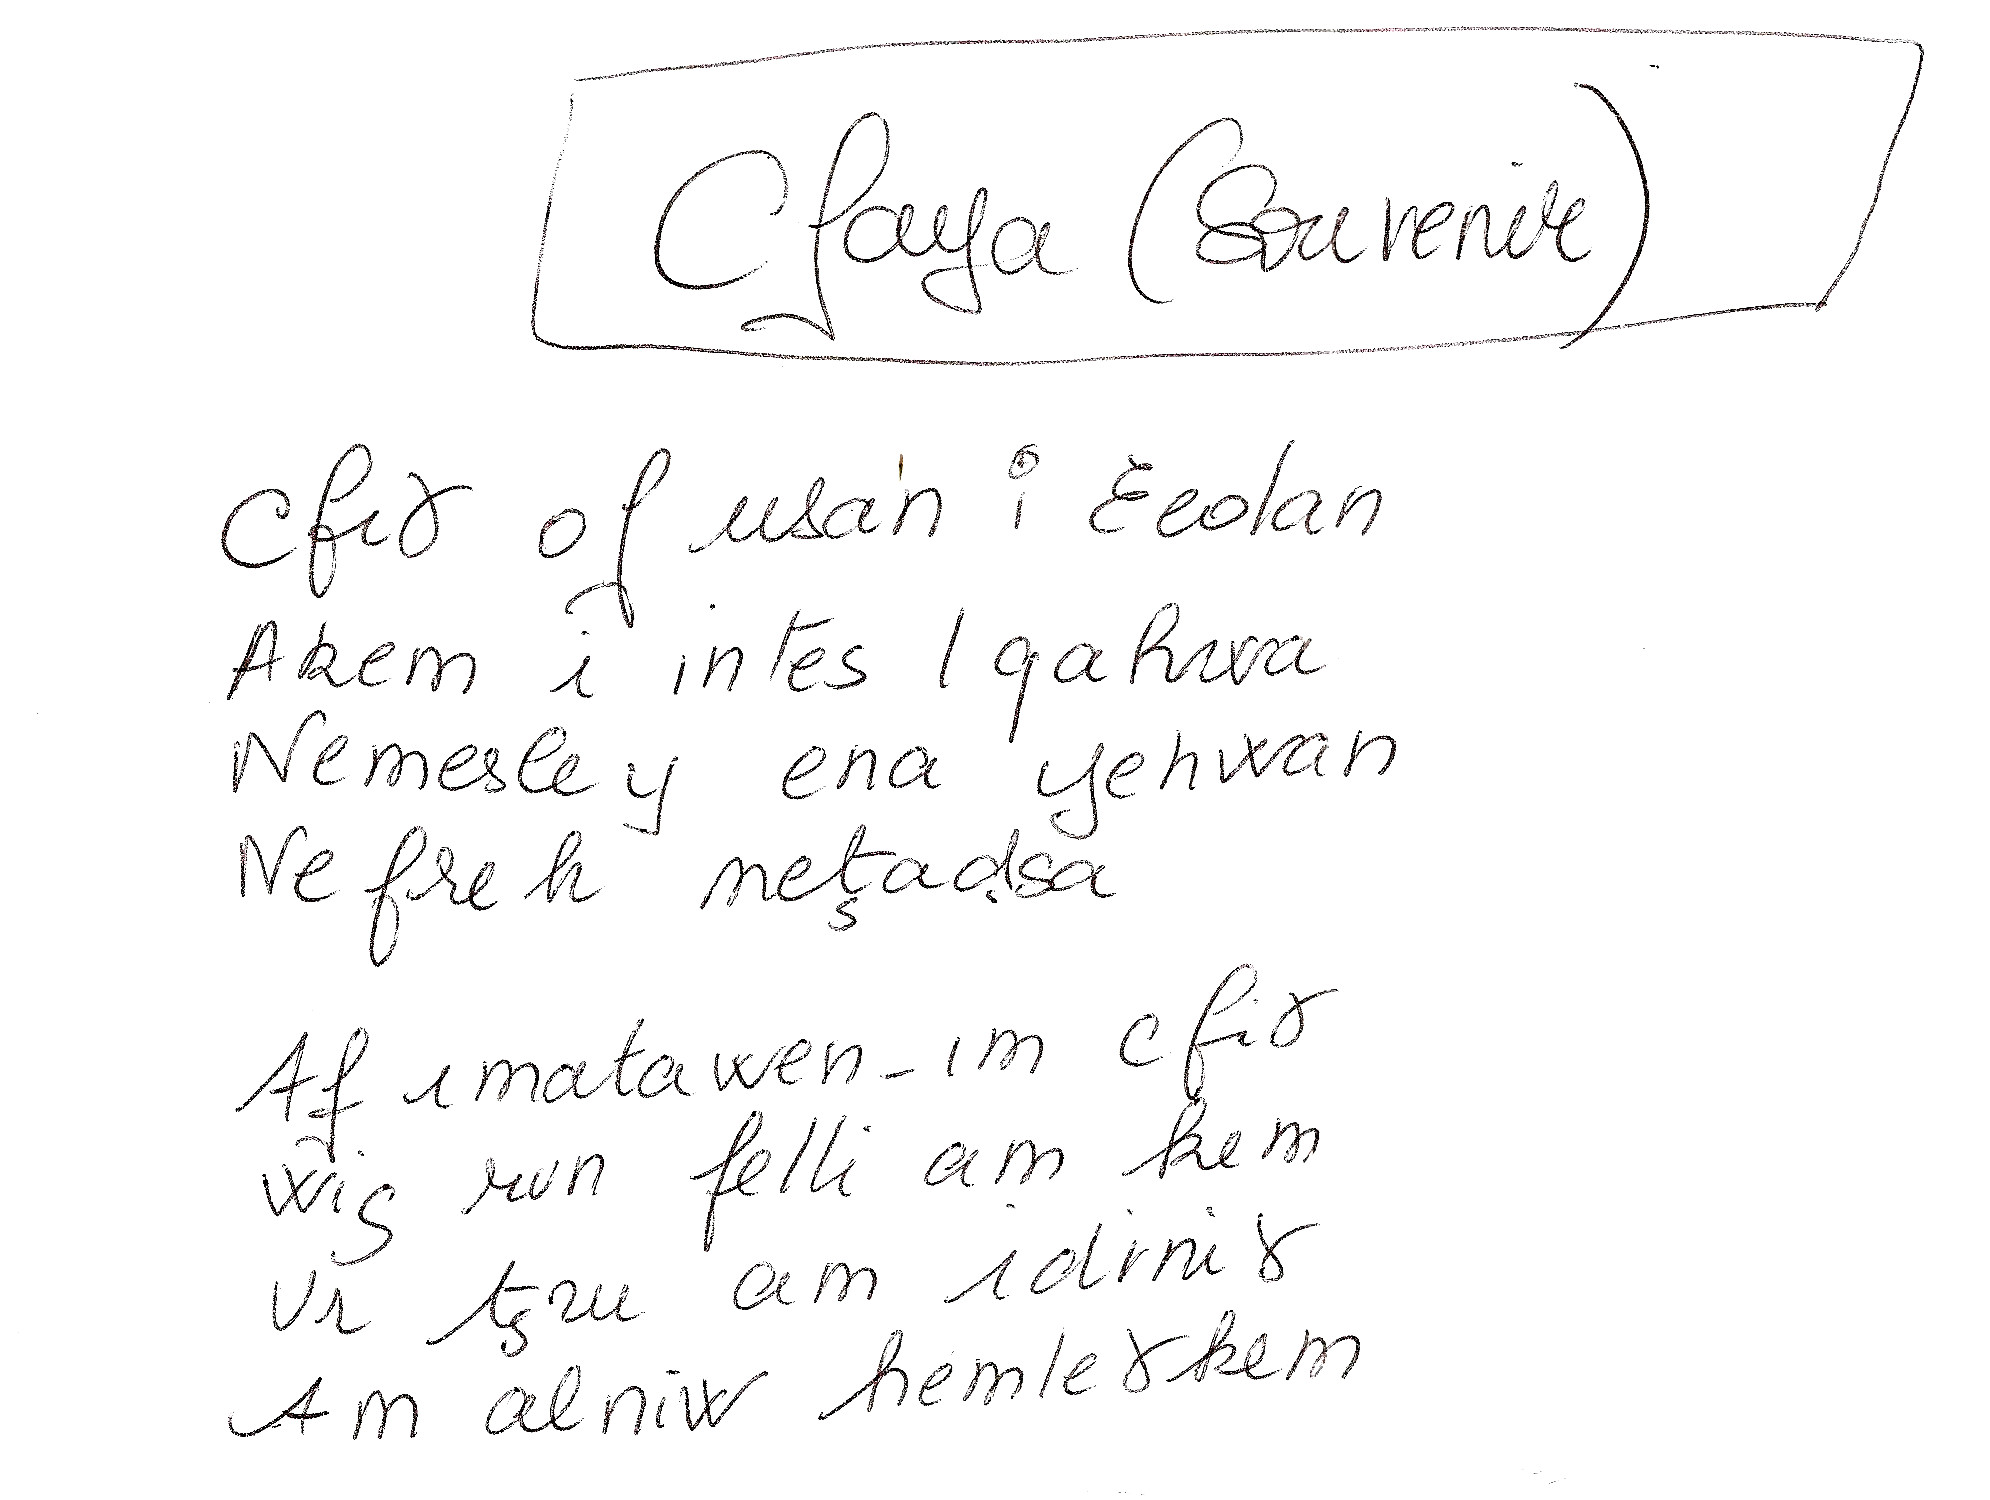 Cfaya (Souvenir)
Cfiɣ af usan i Ɛedan
Akem i ințes lqahwa
Nemesley ena yehwan
Nefreh nețadsa
Af imatawen-im cfiɣ
Wig run felli am kem
Ur țru am idirniɣ
Am alniw hemleɣkem